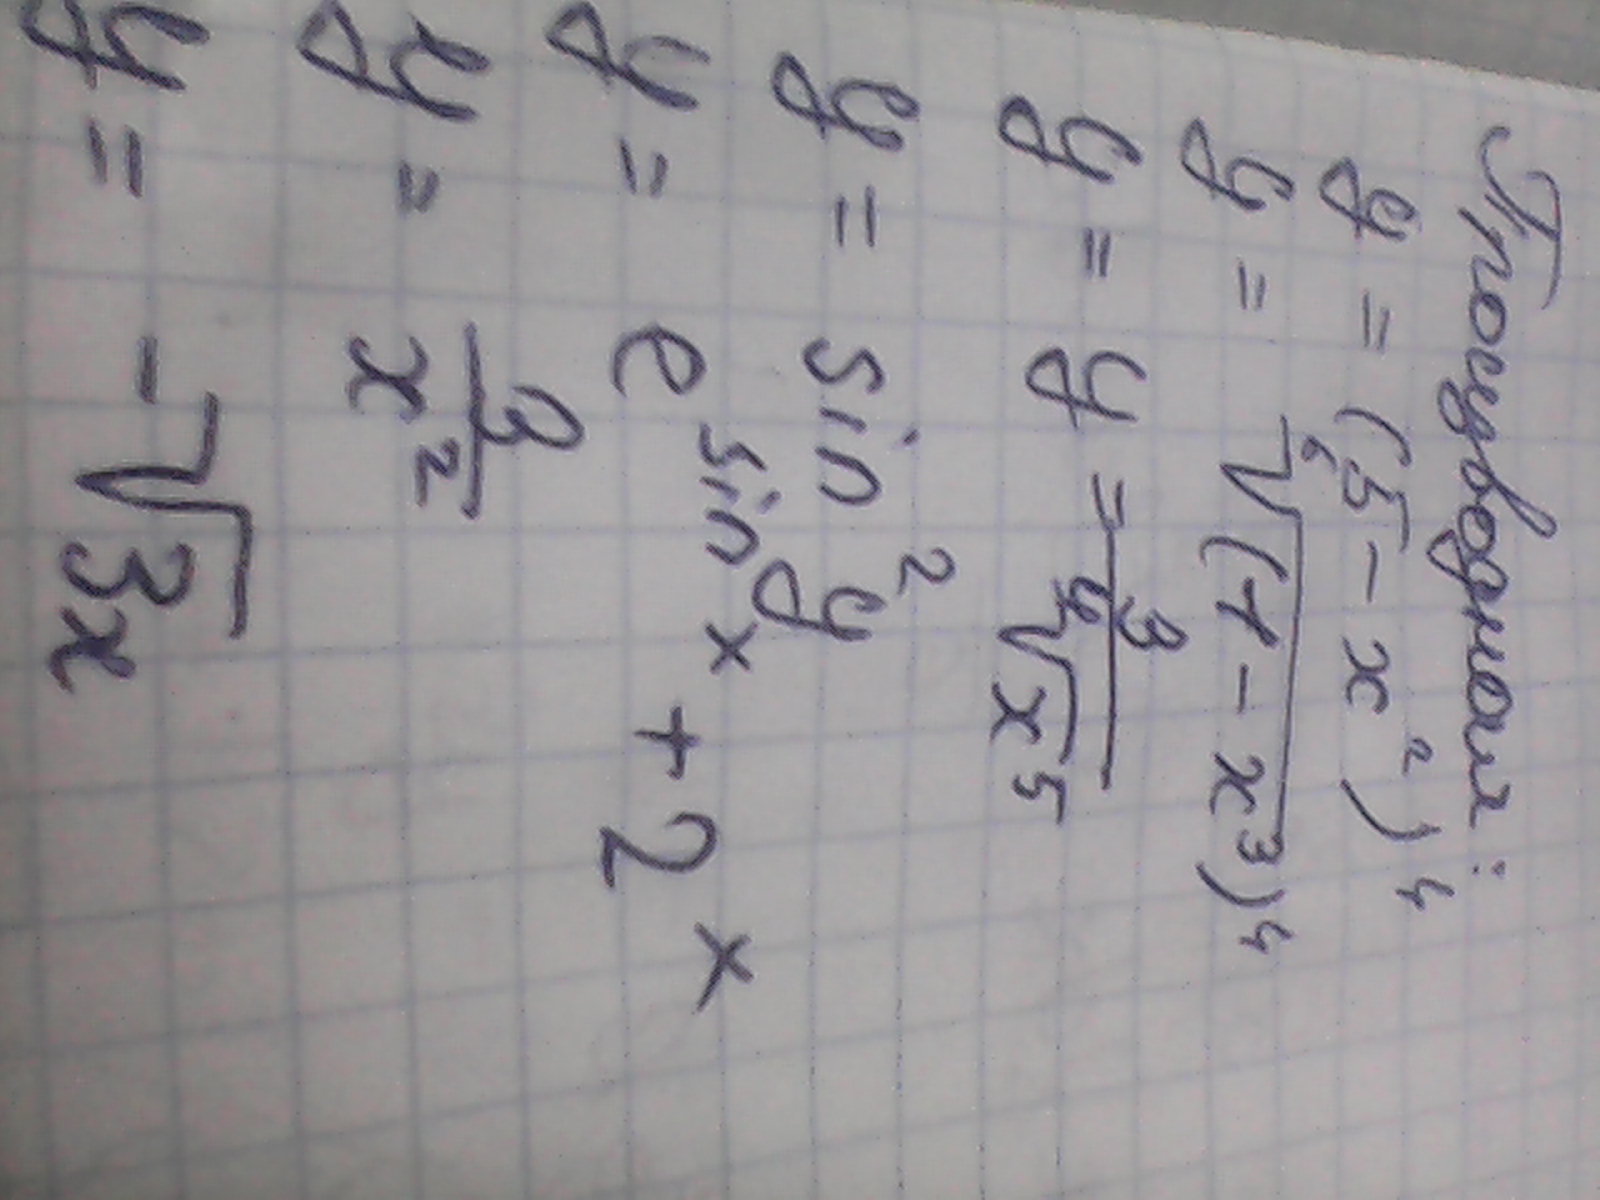 Производная:
y = (5 - x²)⁴
y = ⁶√(1 - x³)⁴
y = y = 3/⁴√x⁵
y = sin²y
y = e^sin x + 2^x
y = 3/x²
y = -√3x